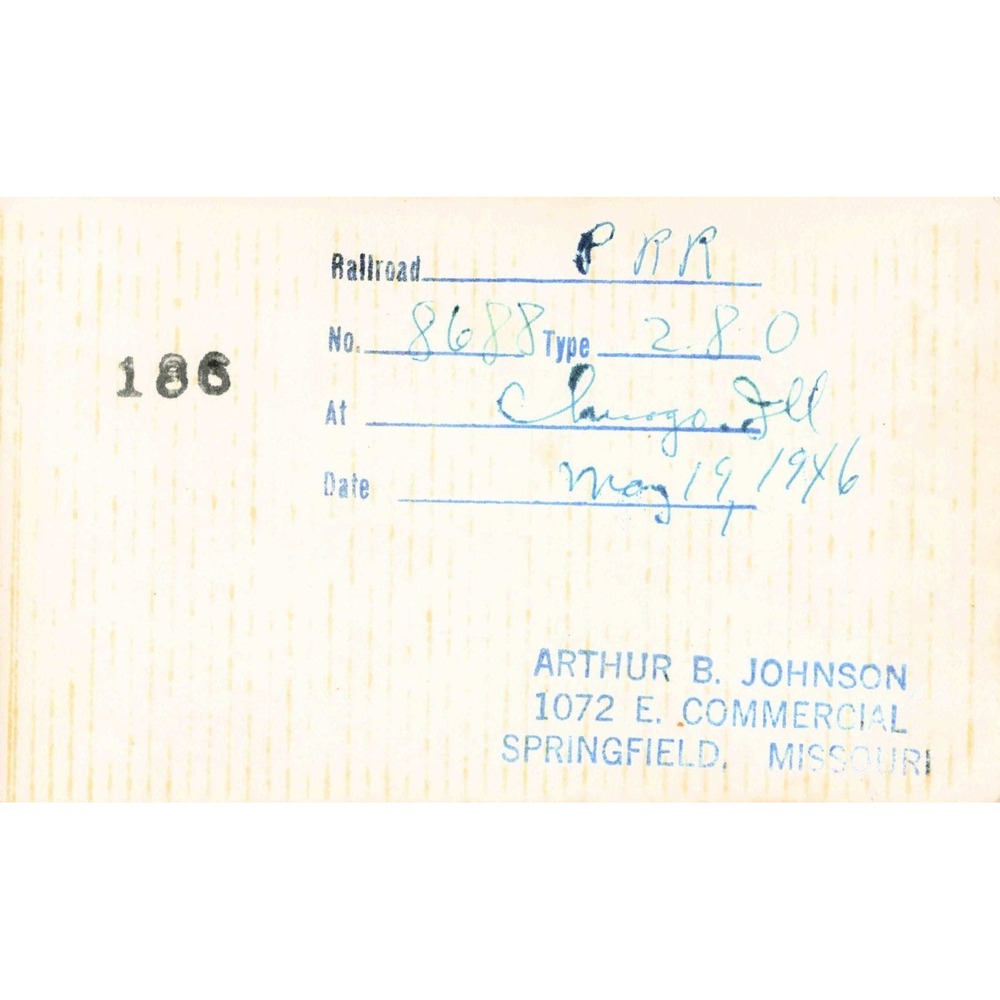 Railroad P R R
No. 8688 Type 2.8.0
186
At Chicago. Ill
Date May 19, 1946
ARTHUR B. JOHNSON
1072 E. COMMERCIAL
SPRINGFIELD, MISSOURI